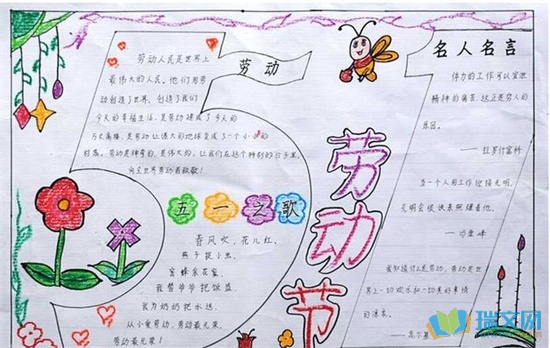 劳动
劳动人民是世界上
最伟大的人民。他们用劳
动创造了世界,创造了我们
今天的幸福生活,是劳动建成了今天的
是劳动让偌大的地球变成了一个小小的
村落。劳动是神奇的,是伟大的。让我们在这个特别的日子里,
向全世界劳动者致敬!
五一之歌
春风吹,花儿红,
燕子捉小虫,
蜜蜂采花蜜,
我替爷爷把饭盛,
我为奶奶把水送,
从小爱劳动,劳动最光荣,
劳动最光荣!
劳动节
名人名言
体力的工作可以宽恕
精神的痛苦,这正是穷人的
乐园。
——拉罗什富科
当一个人用工作迎接光明,
光明会很快来照耀着他。
——冯学峰
我知道什么是劳动:劳动是世
界上一切欢乐和一切美好事情
的源泉。
——高尔基
瑞文网